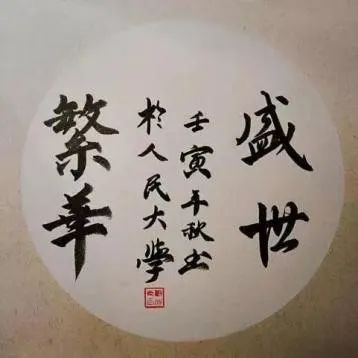 盛世
壬寅年秋书
於人民大学
繁華